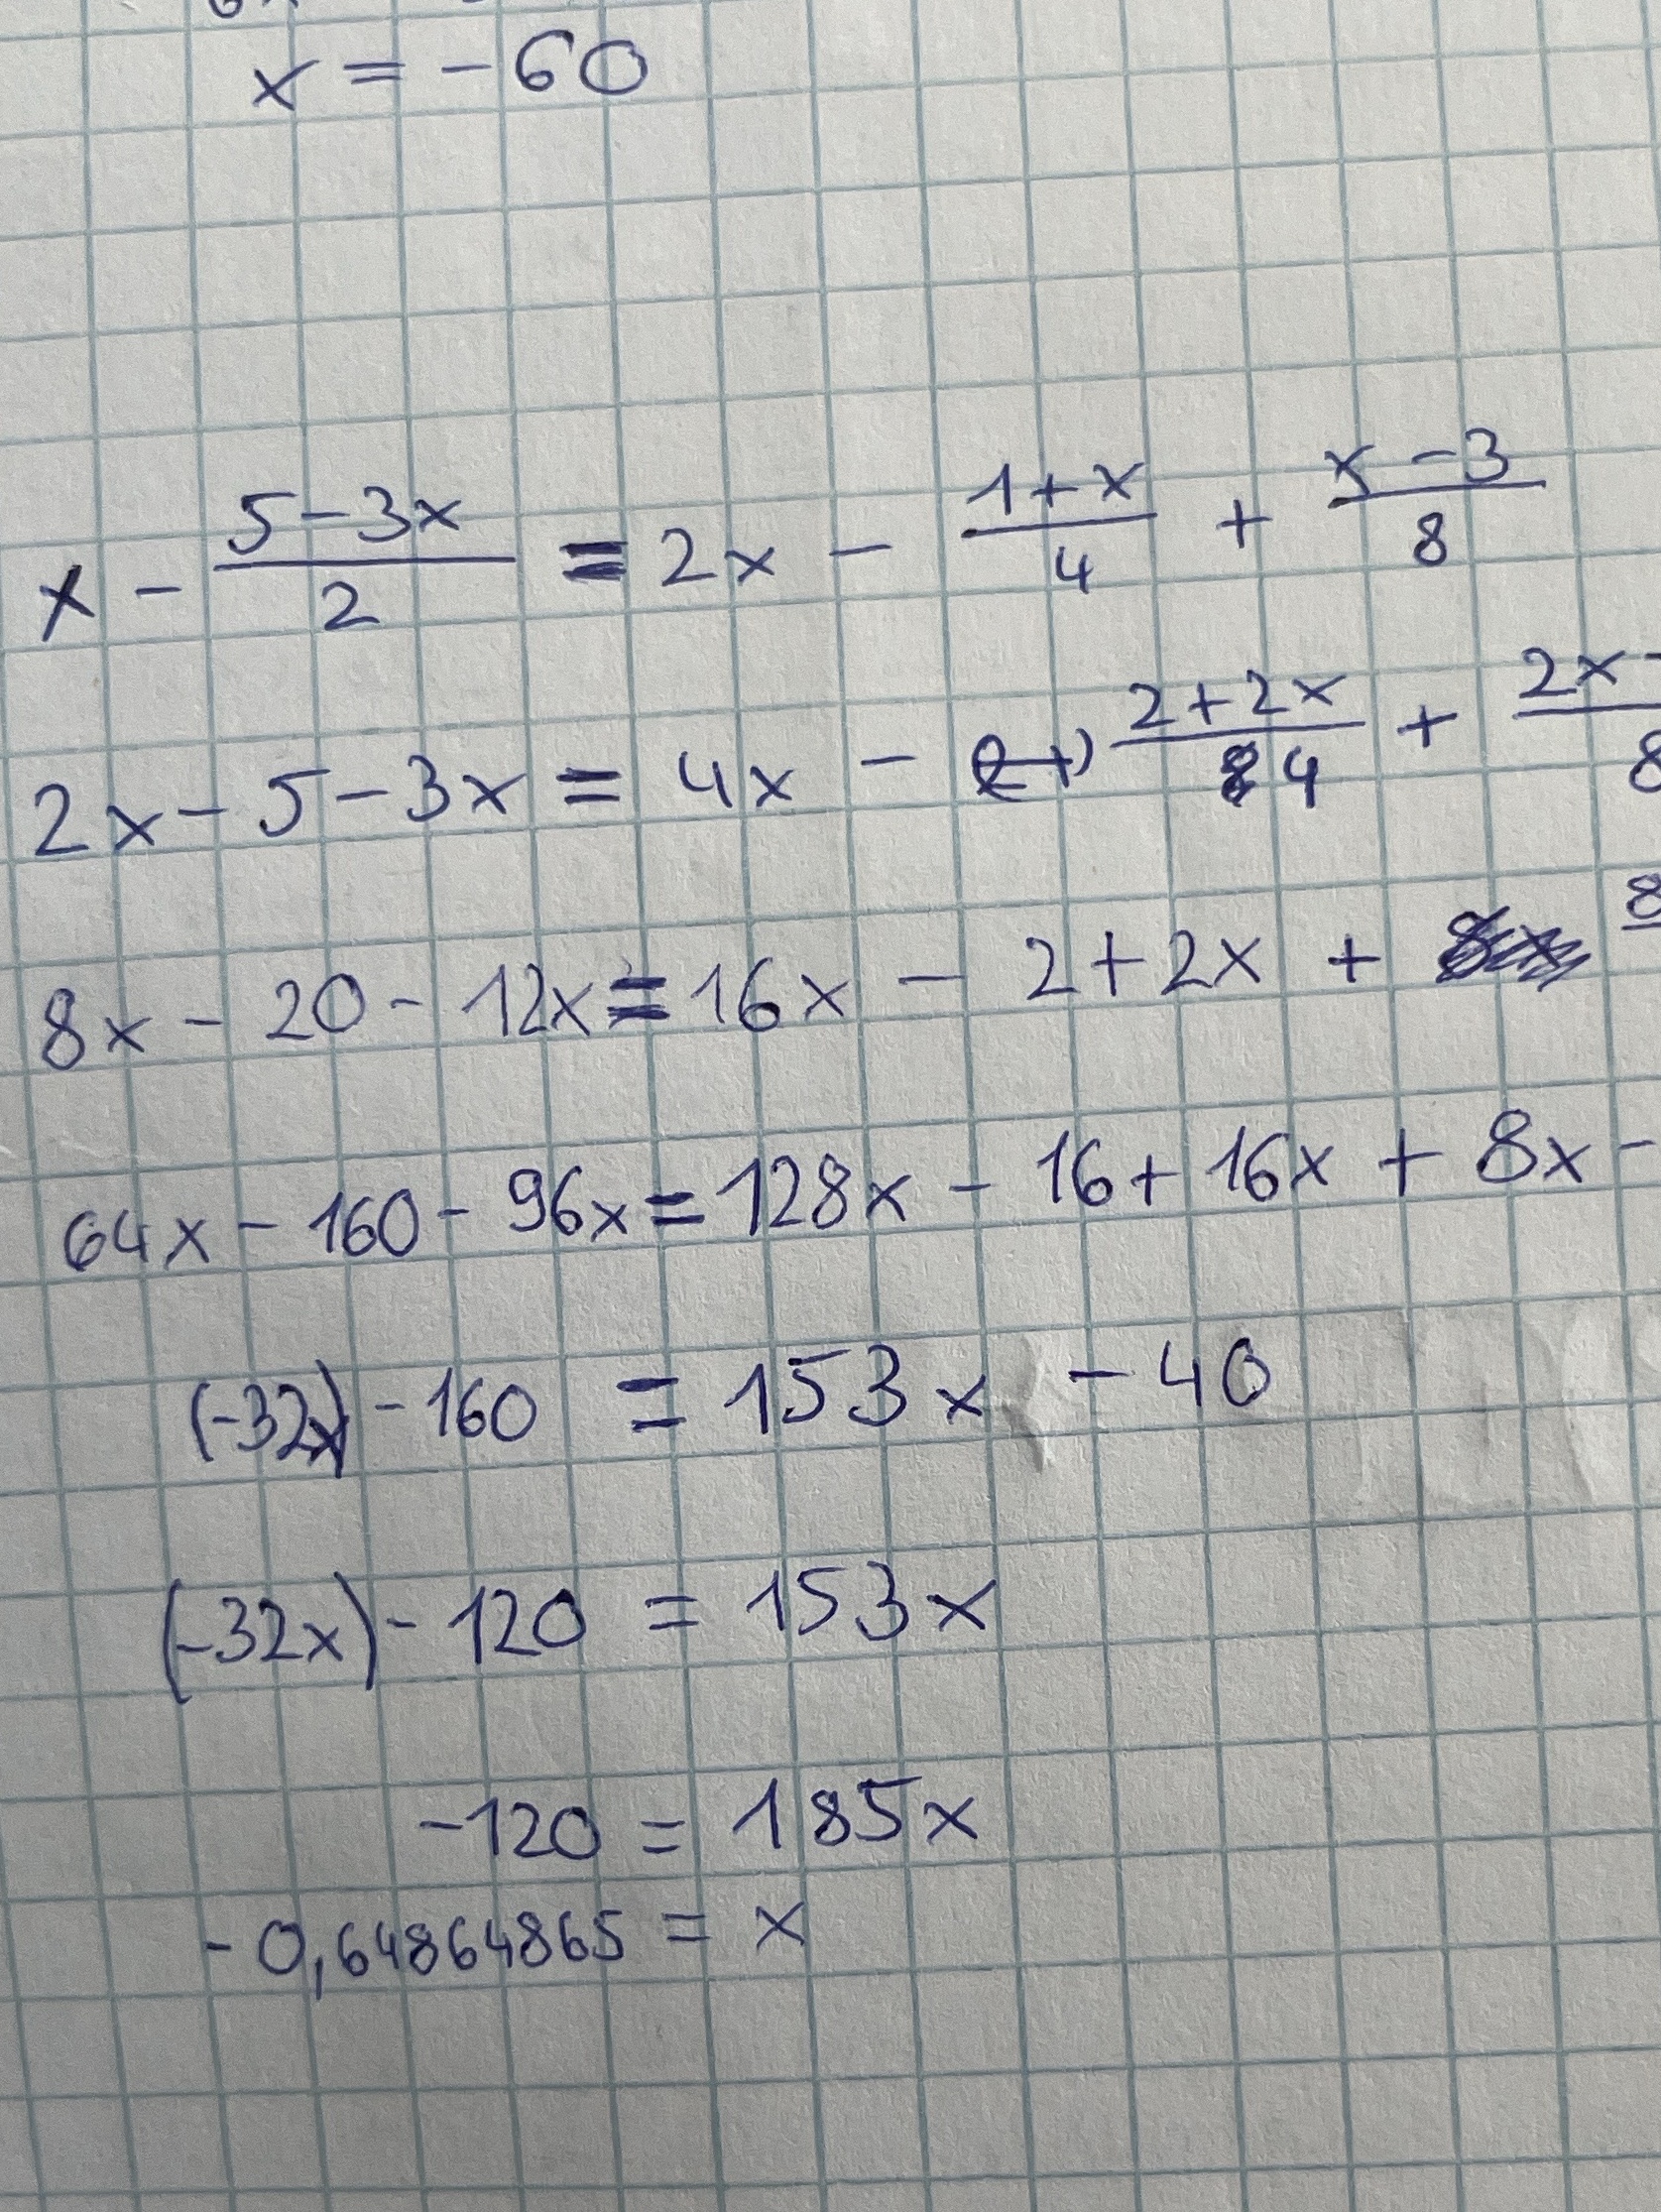 x = -60
x - (5-3x)/2 = 2x - (1+x)/4 + (x-3)/8
2x - 5 - 3x = 4x - (2+2x)/4 + (2x-/8
8x - 20 - 12x = 16x - 2 + 2x + 8
64x - 160 - 96x = 128x - 16 + 16x + 8x -
(-32x) - 160 = 153x - 40
(-32x) - 120 = 153x
-120 = 185x
-0,64864865 = x